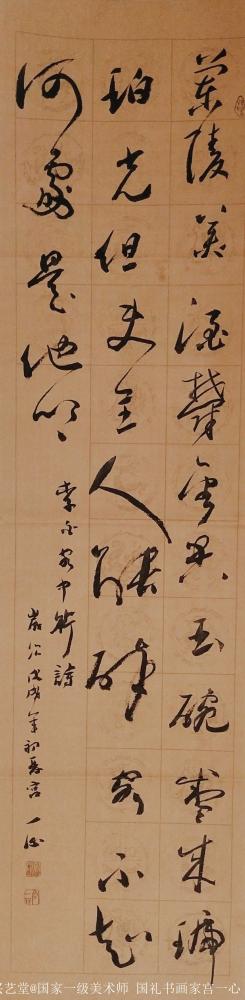 蘭陵美酒鬱金香玉碗盛來琥
珀光但使主人能醉客不知
何處是他鄉
李白客中行詩
歲次戊戌年初夏宫一心
艺堂@国家一级美术师 国礼书画家宫一心